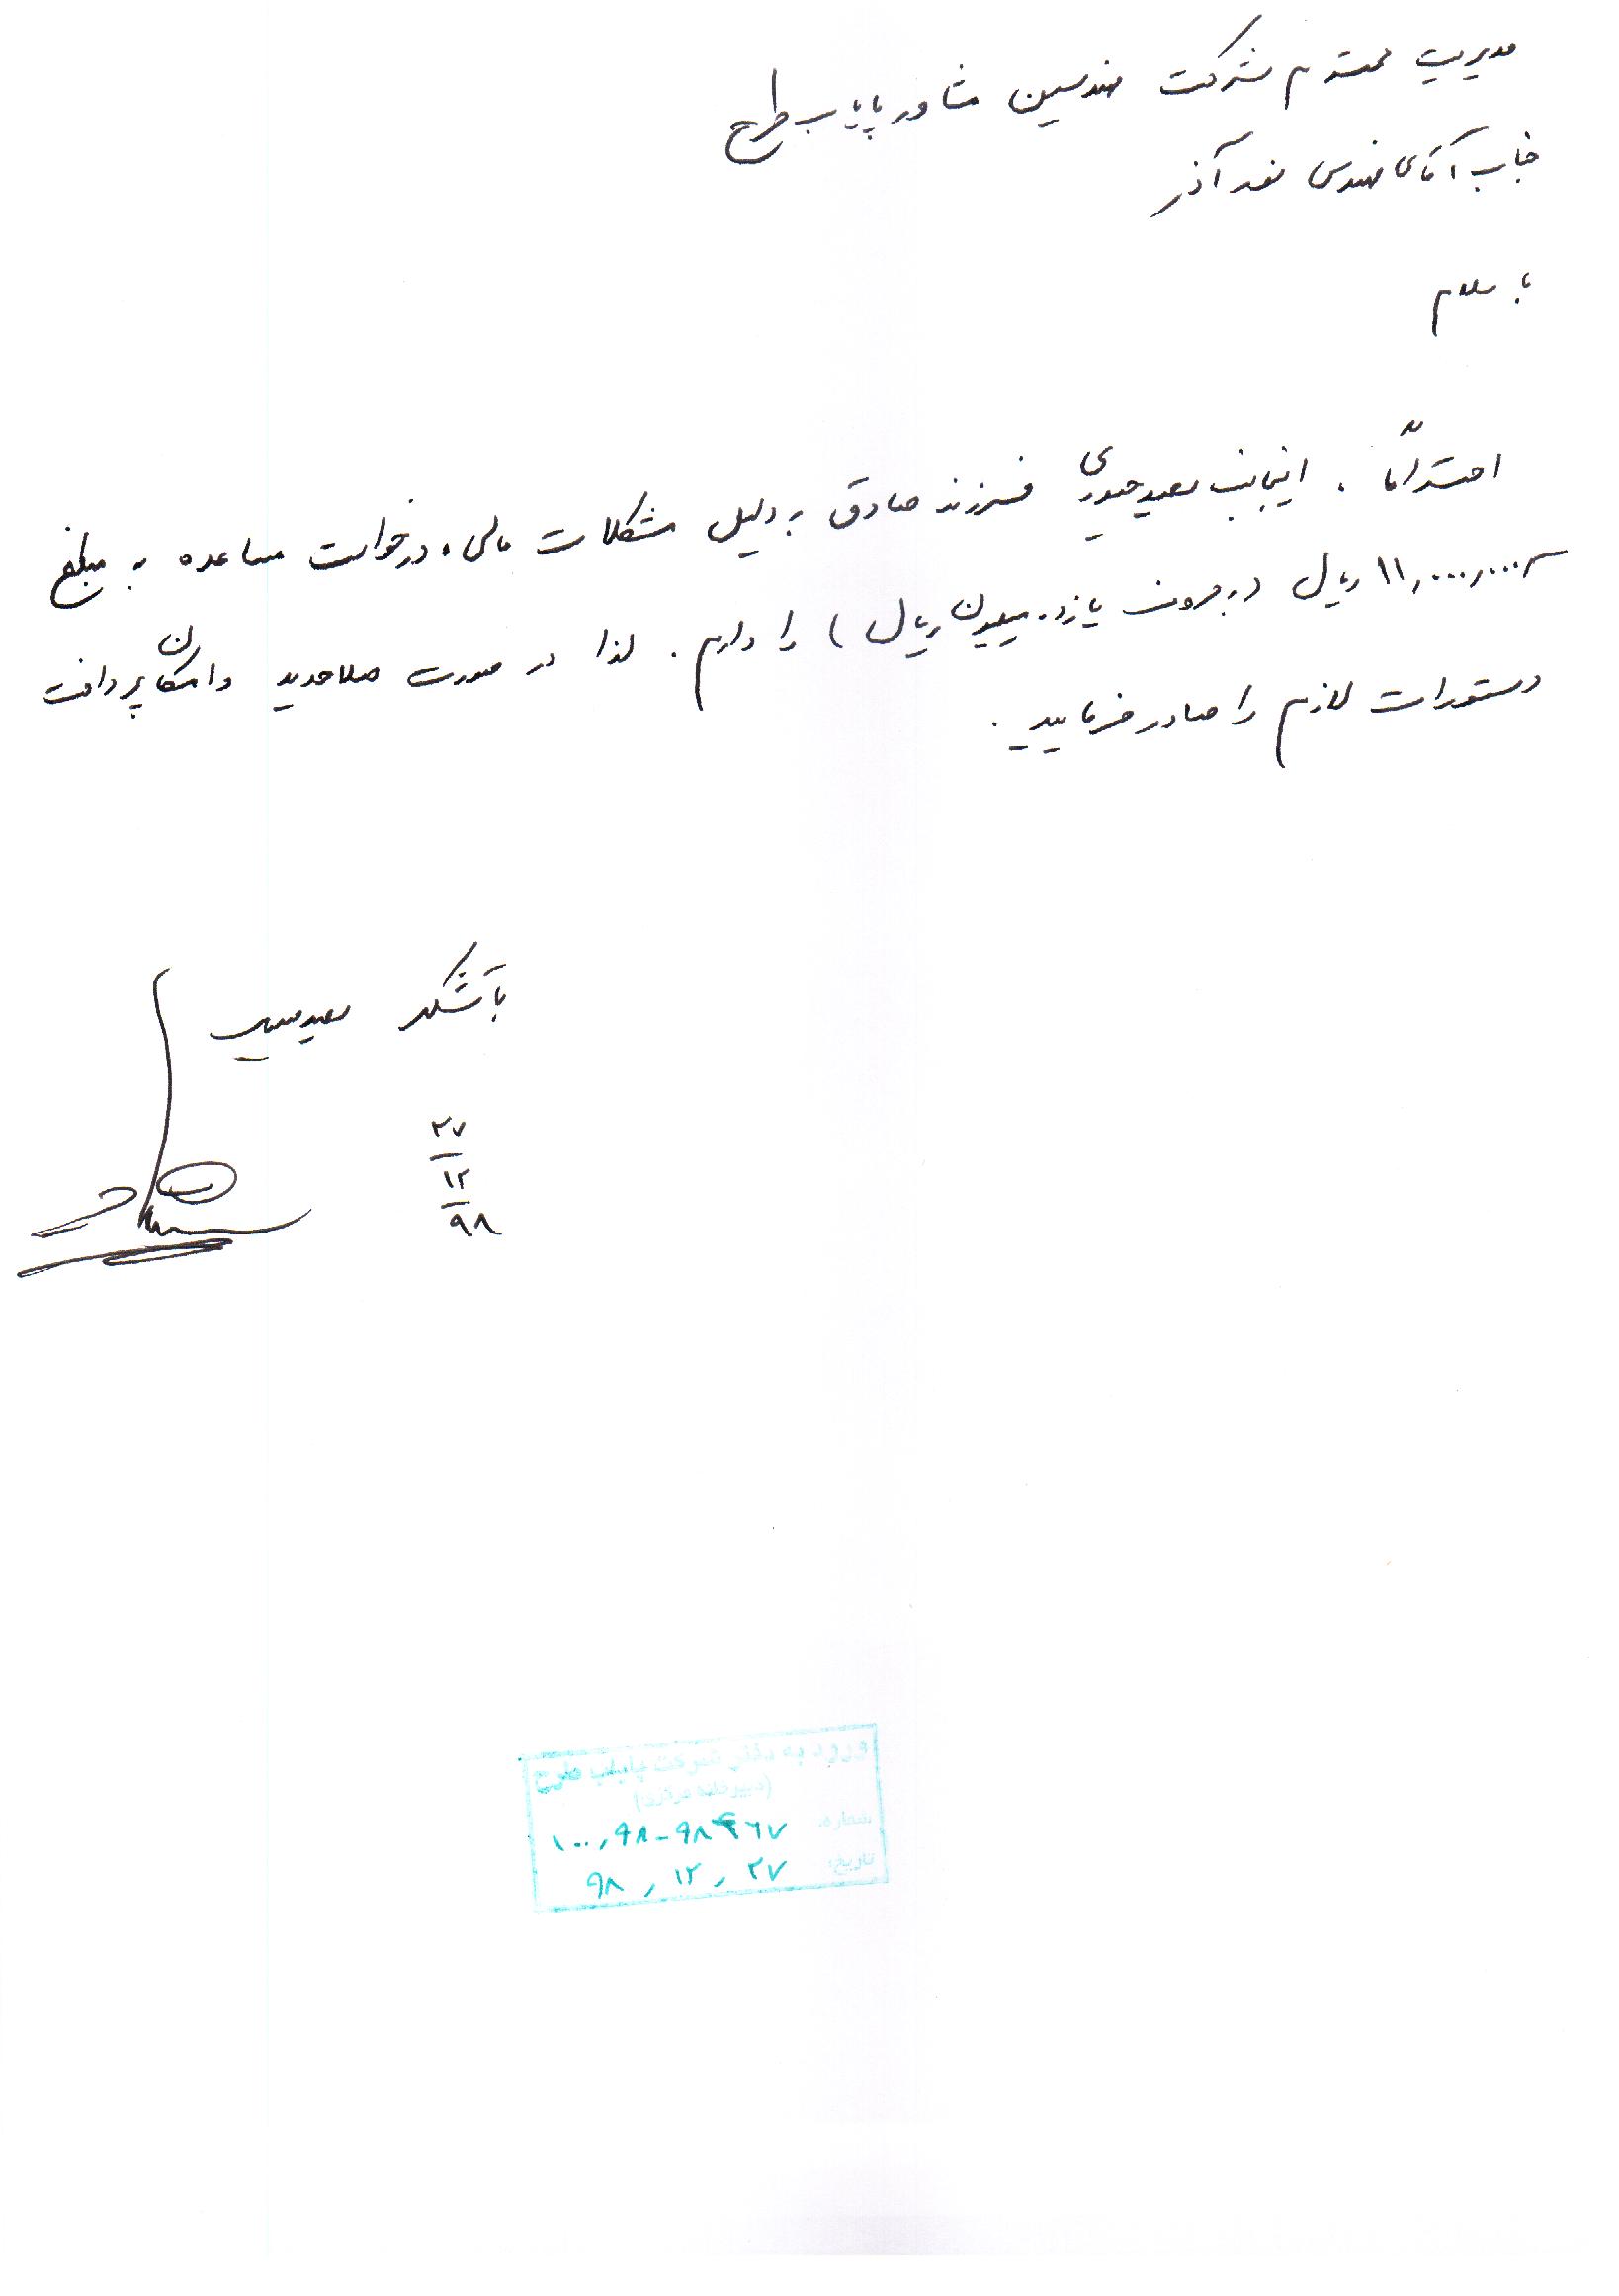 مدیریت محترم شرکت مهندسین مشاور پایاب طرح
جناب آقای مهندس
با سلام
احتراماً، اینجانب سعید حیدری فرزند صادق به دلیل مشکلات مالی، درخواست مساعده به مبلغ
۱۱,۰۰۰,۰۰۰ ریال (به حروف یازده میلیون ریال) را دارم. لذا در صورت صلاحدید و امکان پرداخت
دستورات لازم را صادر فرمایید.
با تشکر سعید
۲۷
۱۲
۹۸
ورود به دفتر شرکت پایاب طرح
(دبیرخانه مرکزی)
شماره:
تاریخ: ۹۸,۱۲,۲۷